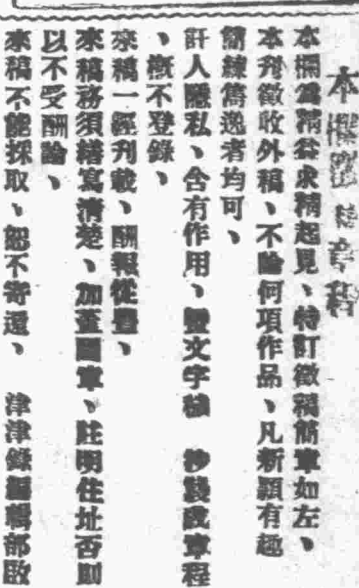 本欄徵稿章程
本欄為精益求精起見、特訂徵稿簡章如左、
本刊徵收外稿、不論何項作品、凡新穎有趣
簡練雋逸者均可、
訐人隱私、含有作用、文字 抄襲改章程
、概不登錄、
來稿一經刊載、酬報從豐、
來稿務須繕寫清楚、加蓋圖章、註明住址否則
以不受酬論、
來稿不能採取、恕不寄還、 津津錄編輯部啟